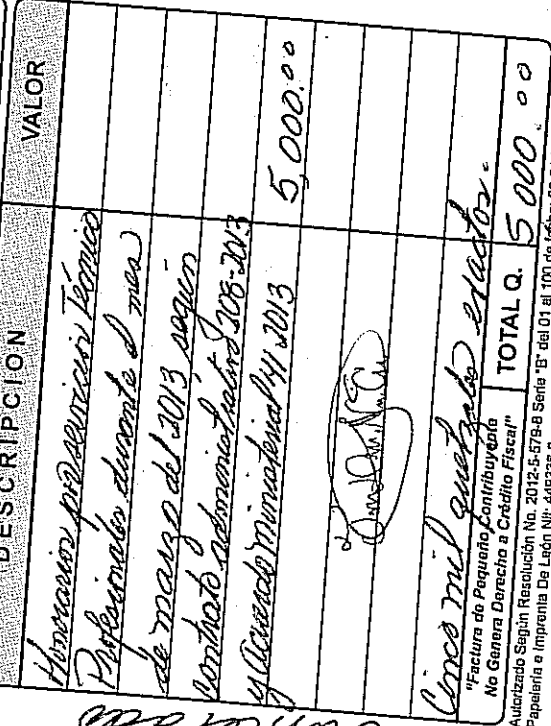 DESCRIPCION VALOR
Honorarios por servicios Técnico
Profesionales durante el mes
de marzo del 2013 según
contrato administrativo 208-2013
y Acuerdo Ministerial 41-2013 5,000.00
Cinco mil quetzales exactos.
"Factura de Pequeño Contribuyente
No Genera Derecho a Crédito Fiscal"
TOTAL Q. 5 000.00
Autorizado Según Resolución No. 2012-5-579-8 Serie "B" del 01 al 100 de
Papelería e Imprenta De León Nit: